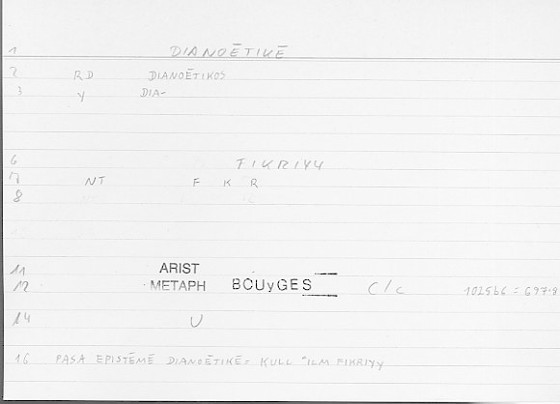 1 DIANOĒTIKĒ
2 RD DIANOĒTIKOS
3 y DIA-
6 FIKRIYY
7 NT F K R
8
11 ARIST
12 METAPH BOUyGES C/c 1025b6 = 697.9
14 U
16 PASA EPISTĒMĒ DIANOĒTIKĒ = KULL ʿILM FIKRIYY